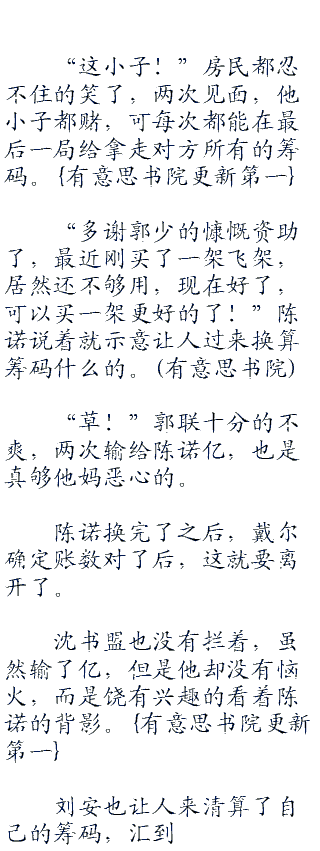 “这小子！”房民都忍
不住的笑了，两次见面，他
小子都赌，可每次都能在最
后一局给拿走对方所有的筹
码。{有意思书院更新第一}
“多谢郭少的慷慨资助
了，最近刚买了一架飞架，
居然还不够用，现在好了，
可以买一架更好的了！”陈
诺说着就示意让人过来换算
筹码什么的。(有意思书院)
“草！”郭联十分的不
爽，两次输给陈诺亿，也是
真够他妈恶心的。
陈诺换完了之后，戴尔
确定账数对了后，这就要离
开了。
沈书盟也没有拦着，虽
然输了亿，但是他却没有恼
火，而是饶有兴趣的看着陈
诺的背影。{有意思书院更新
第一}
刘安也让人来清算了自
己的筹码，汇到